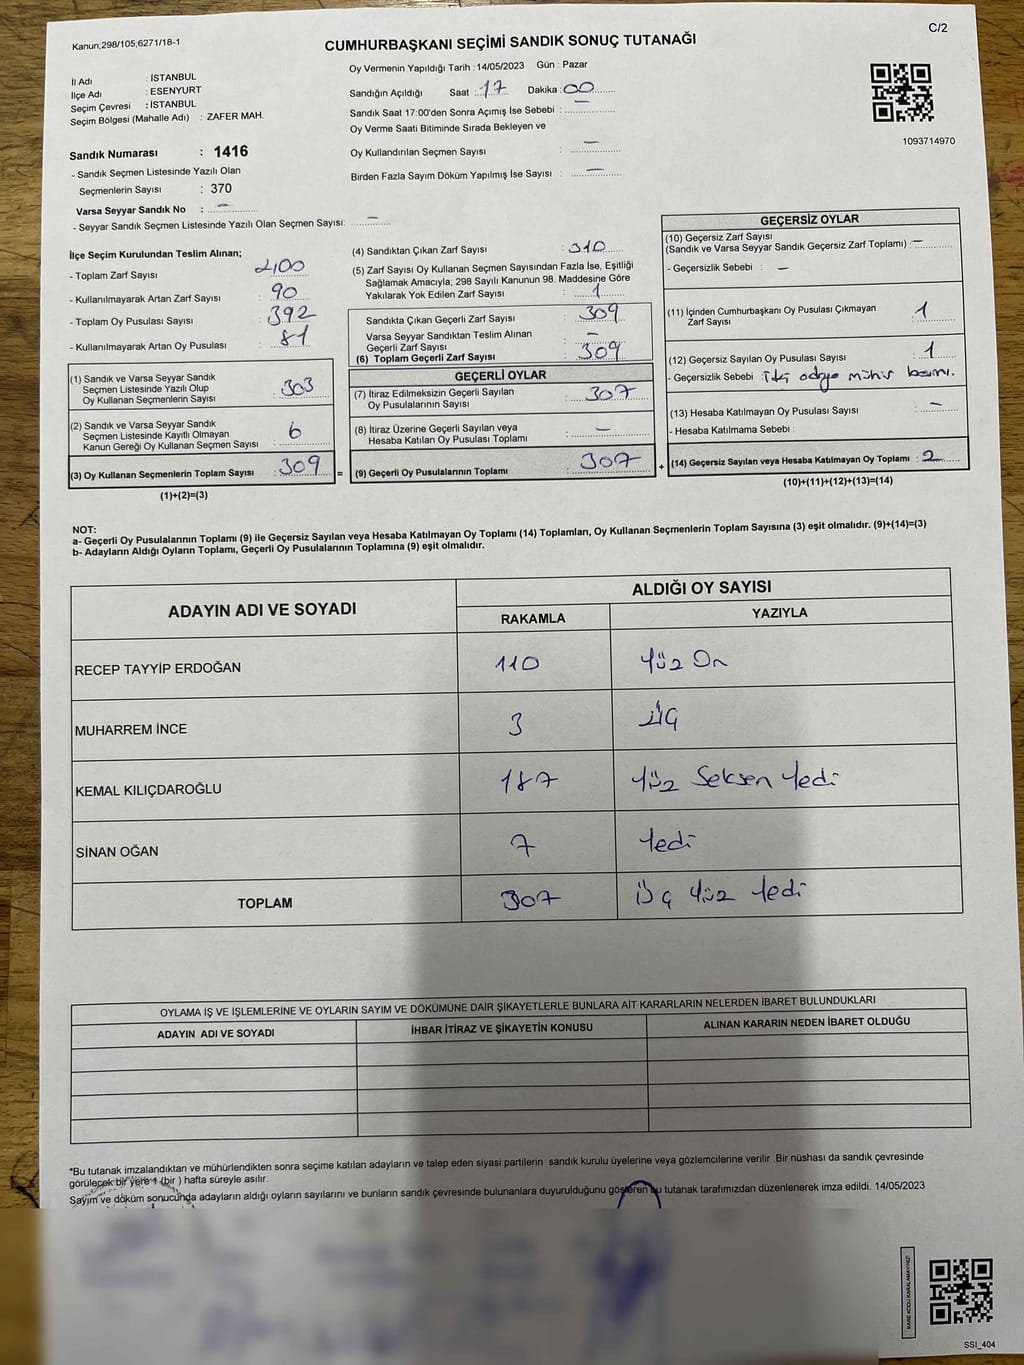 Kanun;298/105;6271/18-1
C/2
CUMHURBAŞKANI SEÇİMİ SANDIK SONUÇ TUTANAĞI
İl Adı : İSTANBUL
İlçe Adı : ESENYURT
Seçim Çevresi : İSTANBUL
Seçim Bölgesi (Mahalle Adı) : ZAFER MAH.
Oy Vermenin Yapıldığı Tarih : 14/05/2023 Gün : Pazar
Sandığın Açıldığı Saat : 17 Dakika : 00
Sandık Saat 17:00'den Sonra Açımış İse Sebebi : —
Oy Verme Saati Bitiminde Sırada Bekleyen ve
Oy Kullandırılan Seçmen Sayısı : —
Birden Fazla Sayım Döküm Yapılmış İse Sayısı : —
1093714970
Sandık Numarası : 1416
- Sandık Seçmen Listesinde Yazılı Olan
Seçmenlerin Sayısı : 370
Varsa Seyyar Sandık No : —
- Seyyar Sandık Seçmen Listesinde Yazılı Olan Seçmen Sayısı: —
İlçe Seçim Kurulundan Teslim Alınan;
- Toplam Zarf Sayısı : 400
- Kullanılmayarak Artan Zarf Sayısı : 90
- Toplam Oy Pusulası Sayısı : 392
- Kullanılmayarak Artan Oy Pusulası : 81
(1) Sandık ve Varsa Seyyar Sandık
Seçmen Listesinde Yazılı Olup
Oy Kullanan Seçmenlerin Sayısı : 303
(2) Sandık ve Varsa Seyyar Sandık
Seçmen Listesinde Kayıtlı Olmayan
Kanun Gereği Oy Kullanan Seçmen Sayısı : 6
(3) Oy Kullanan Seçmenlerin Toplam Sayısı : 309
(1)+(2)=(3)
=
(4) Sandıktan Çıkan Zarf Sayısı : 310
(5) Zarf Sayısı Oy Kullanan Seçmen Sayısından Fazla İse, Eşitliği
Sağlamak Amacıyla; 298 Sayılı Kanunun 98. Maddesine Göre
Yakılarak Yok Edilen Zarf Sayısı : 1
Sandıkta Çıkan Geçerli Zarf Sayısı : 309
Varsa Seyyar Sandıktan Teslim Alınan
Geçerli Zarf Sayısı : —
(6) Toplam Geçerli Zarf Sayısı : 309
GEÇERLİ OYLAR
(7) İtiraz Edilmeksizin Geçerli Sayılan
Oy Pusulalarının Sayısı : 307
(8) İtiraz Üzerine Geçerli Sayılan veya
Hesaba Katılan Oy Pusulası Toplamı : —
(9) Geçerli Oy Pusulalarının Toplamı : 307
+
GEÇERSİZ OYLAR
(10) Geçersiz Zarf Sayısı
(Sandık ve Varsa Seyyar Sandık Geçersiz Zarf Toplamı) : —
- Geçersizlik Sebebi : —
(11) İçinden Cumhurbaşkanı Oy Pusulası Çıkmayan
Zarf Sayısı : 1
(12) Geçersiz Sayılan Oy Pusulası Sayısı : 1
- Geçersizlik Sebebi : iki adaya mühür basımı.
(13) Hesaba Katılmayan Oy Pusulası Sayısı : —
- Hesaba Katılmama Sebebi :
(14) Geçersiz Sayılan veya Hesaba Katılmayan Oy Toplamı : 2
(10)+(11)+(12)+(13)=(14)
NOT:
a- Geçerli Oy Pusulalarının Toplamı (9) ile Geçersiz Sayılan veya Hesaba Katılmayan Oy Toplamı (14) Toplamları, Oy Kullanan Seçmenlerin Toplam Sayısına (3) eşit olmalıdır. (9)+(14)=(3)
b- Adayların Aldığı Oyların Toplamı, Geçerli Oy Pusulalarının Toplamına (9) eşit olmalıdır.
ADAYIN ADI VE SOYADI
ALDIĞI OY SAYISI
RAKAMLA YAZIYLA
RECEP TAYYİP ERDOĞAN 110 Yüz On
MUHARREM İNCE 3 üç
KEMAL KILIÇDAROĞLU 187 Yüz Seksen Yedi
SİNAN OĞAN 7 Yedi
TOPLAM 307 üç yüz Yedi
OYLAMA İŞ VE İŞLEMLERİNE VE OYLARIN SAYIM VE DÖKÜMÜNE DAİR ŞİKAYETLERLE BUNLARA AİT KARARLARIN NELERDEN İBARET BULUNDUKLARI
ADAYIN ADI VE SOYADI İHBAR İTİRAZ VE ŞİKAYETİN KONUSU ALINAN KARARIN NEDEN İBARET OLDUĞU
*Bu tutanak imzalandıktan ve mühürlendikten sonra seçime katılan adayların ve talep eden siyasi partilerin sandık kurulu üyelerine veya gözlemcilerine verilir .Bir nüshası da sandık çevresinde
görülecek bir yere 1 (bir ) hafta süreyle asılır.
Sayım ve döküm sonucunda adayların aldığı oyların sayılarını ve bunların sandık çevresinde bulunanlara duyurulduğunu gösteren bu tutanak tarafımızdan düzenlenerek imza edildi. 14/05/2023
KARE KODU KARALAMAYINIZ!
SSI_404